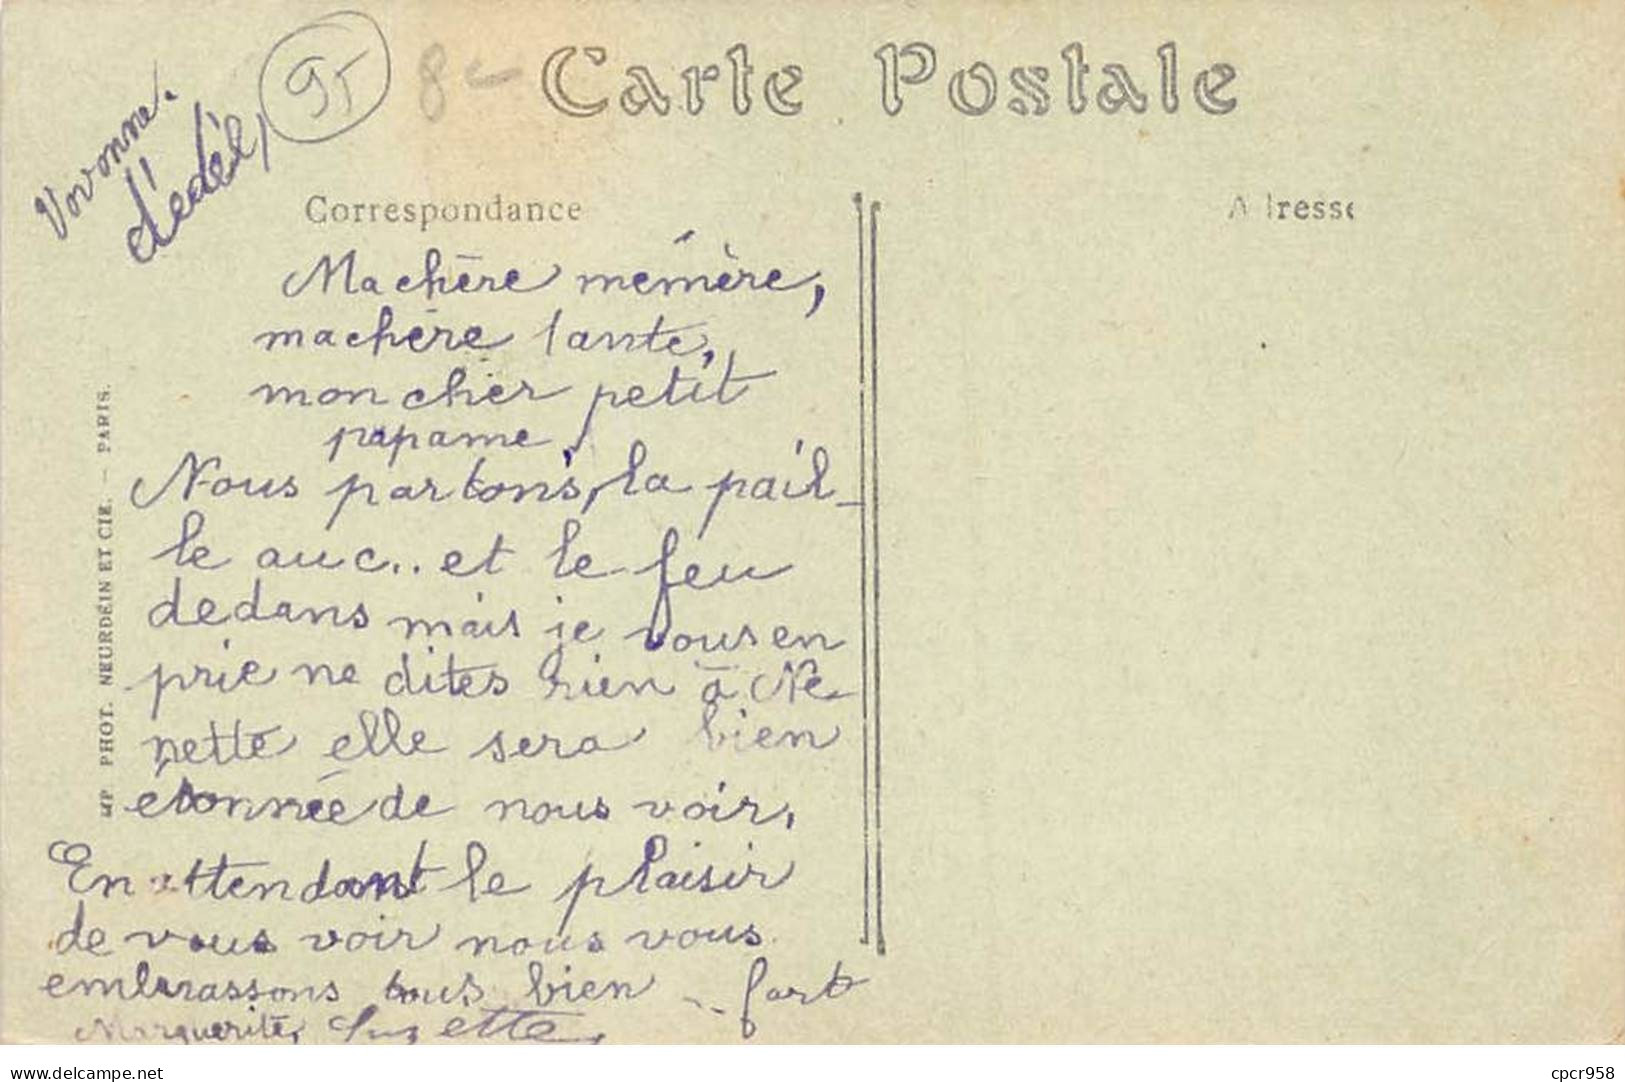 Vovonne.
dédèl,
95
8
Carte Postale
Correspondance
Adresse
Ma chère mémère,
ma chère tante,
mon cher petit
papame,
Nous partons, la pail-
le au c.. et le feu
dedans mais je vous en
prie ne dites rien à Ne-
nette elle sera bien
étonnée de nous voir,
En attendant le plaisir
de vous voir nous vous
embrassons tous bien fort
Marguerite, Suzette,
IMP PHOT. NEURDEIN ET CIE. – PARIS.
delcampe.net
cpcr958